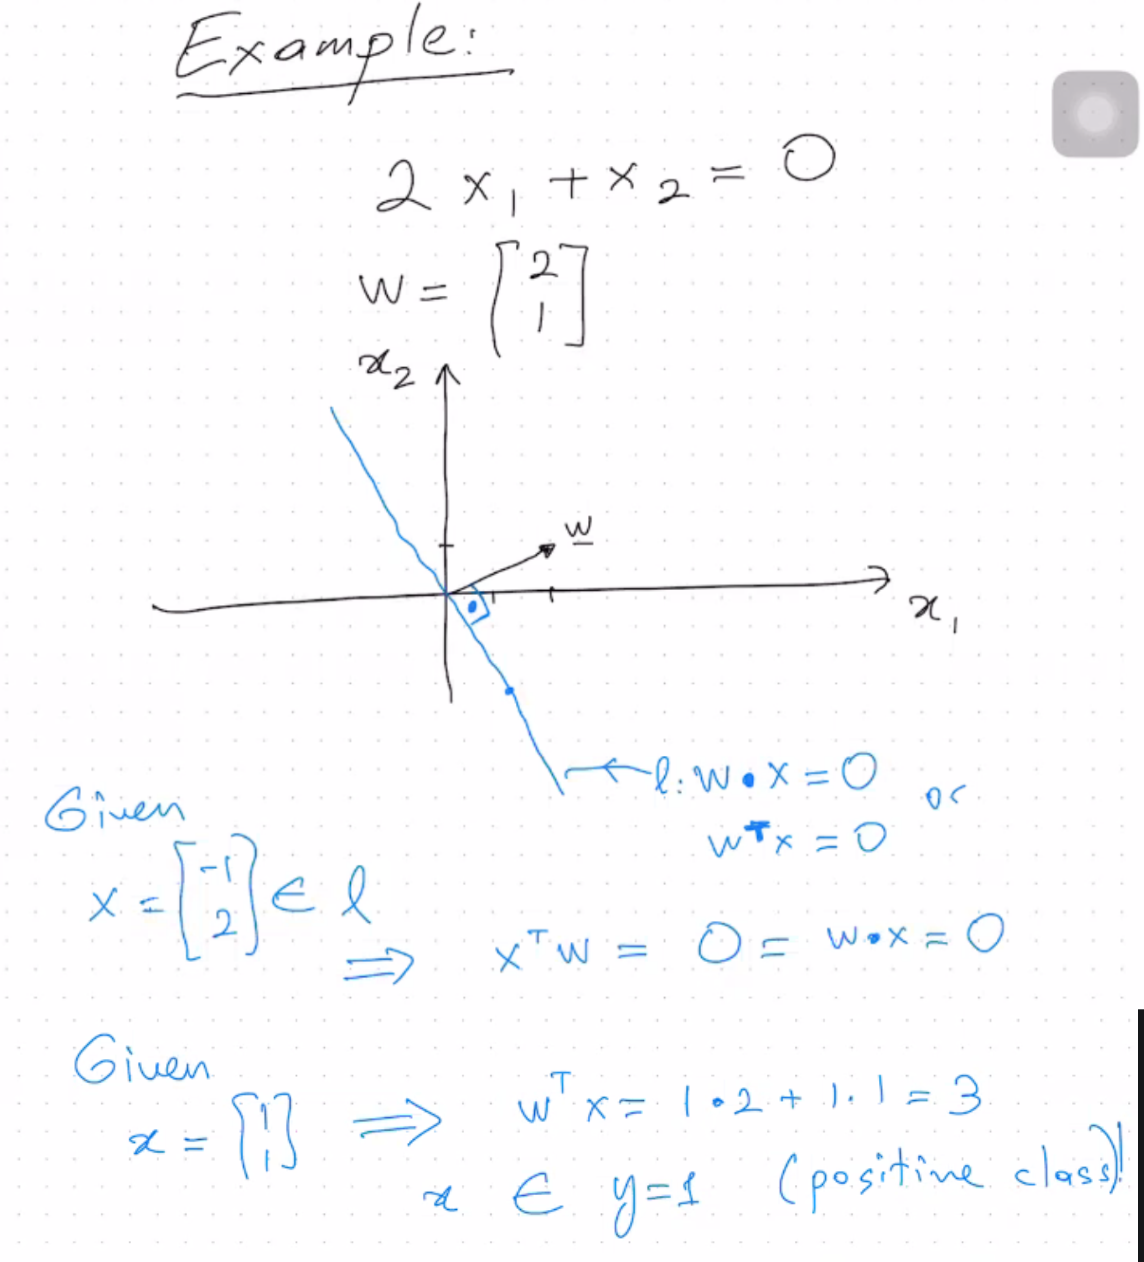 Example:
2 x₁ + x₂ = 0
w = [2
1]
x₂
w
x₁
l: w • x = 0 or
wᵀx = 0
Given
x = [-1
2] ∈ l
⇒ xᵀw = 0 = w•x = 0
Given
x = [1
1] ⇒ wᵀx = 1•2 + 1.1 = 3
x ∈ y=1 (positive class)!